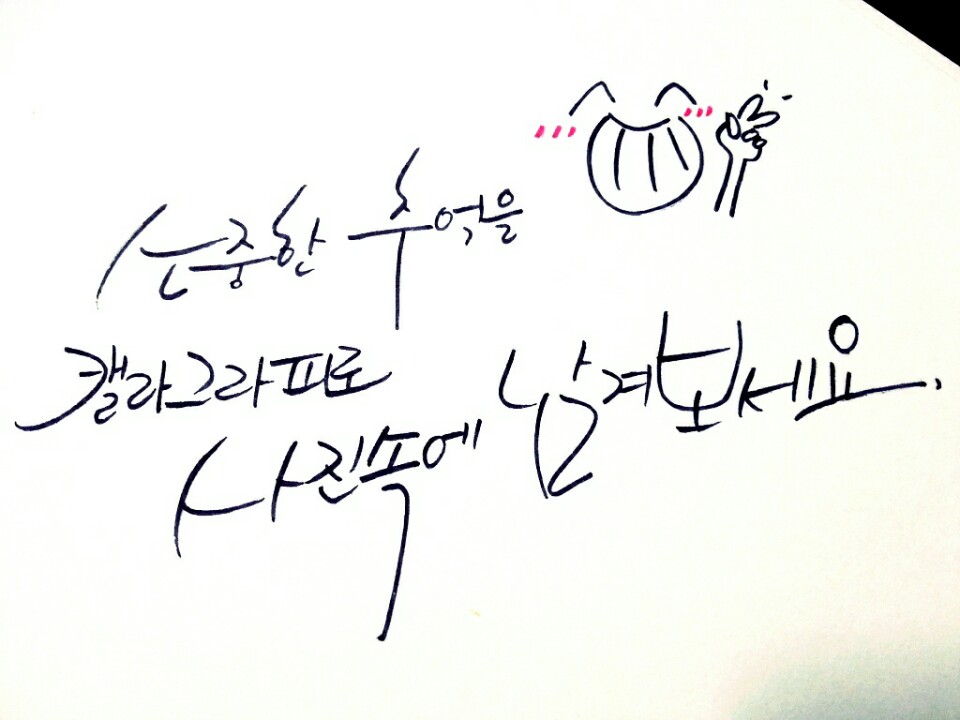 소중한 추억을
캘라그라피로
사진속에 남겨보세요.